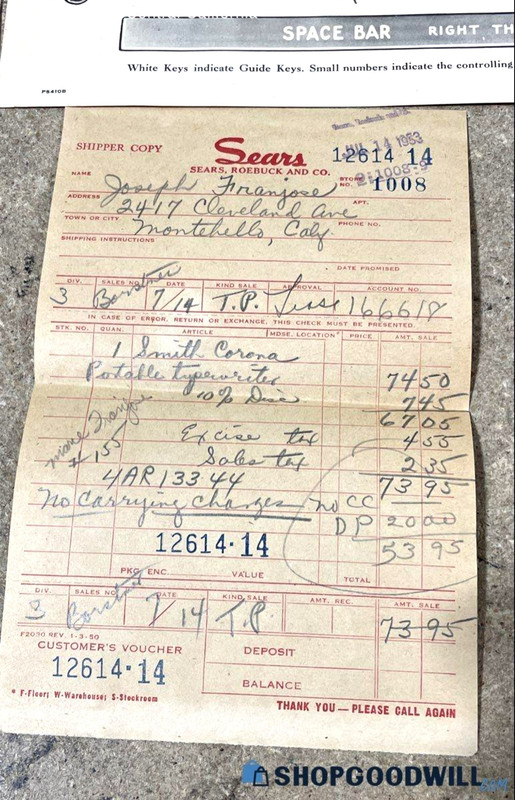 SPACE BAR RIGHT TH
White Keys indicate Guide Keys. Small numbers indicate the controlling
PS4108
SHIPPER COPY
Sears
SEARS, ROEBUCK AND CO.
12614 14
14 1953
STORE NO. 1008
NAME Joseph Franjose
ADDRESS 2417 Cleveland Ave APT.
TOWN OR CITY Montebello, Calif PHONE NO.
SHIPPING INSTRUCTIONS
DATE PROMISED
DIV. SALES NO. DATE KIND SALE APPROVAL ACCOUNT NO.
3 7/14 T.P. 166618
IN CASE OF ERROR, RETURN OR EXCHANGE, THIS CHECK MUST BE PRESENTED.
STK. NO. QUAN. ARTICLE MDSE. LOCATION* PRICE AMT. SALE
1 Smith Corona
Potable typewriter 74 50
10% Disc 7 45
67 05
Excise tax 4 55
Sales tax 2 35
# 155
4AR 133 44 73 95
No Carrying Charges no CC
DP 20 00
12614-14 53 95
PKG. ENC. VALUE TOTAL
DIV. SALES NO. DATE KIND SALE AMT. REC. AMT. SALE
3 7/14 T.P. 73 95
F2030 REV. 1-3-50
CUSTOMER'S VOUCHER DEPOSIT
12614-14 BALANCE
* F-Floor; W-Warehouse; S-Stockroom
THANK YOU — PLEASE CALL AGAIN
SHOPGOODWILL